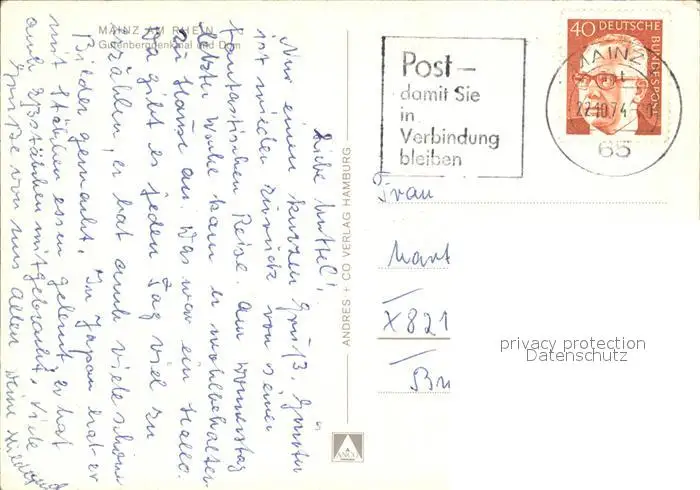 MAINZ AM RHEIN
Gutenbergdenkmal und Dom
Liebe Muttel!
Nur einen kurzen Gruß. Günter
ist wieder zurück von seiner
fantastischen Reise. Am Donnerstag
letzter Woche kam er wohlbehalten
zu Hause an. Das war ein Hallo.
Da gibt es jeden Tag viel zu
erzählen, er hat auch viele schöne
Bilder gemacht. In Japan hat er
mit Stäbchen essen gelernt, er hat
auch Eßstäbchen mitgebracht. Viele
Grüße von uns allen Deine
ANDRES + CO VERLAG HAMBURG
ANCO
Post –
damit Sie
in
Verbindung
bleiben
40 DEUTSCHE
BUNDESPOST
MAINZ
22.10.74
65
Frau
X821
privacy protection
Datenschutz